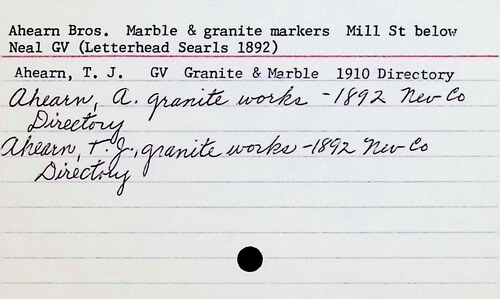 Ahearn Bros. Marble & granite markers Mill St below
Neal GV (Letterhead Searls 1892)
Ahearn, T. J. GV Granite & Marble 1910 Directory
Ahearn, A. granite works - 1892 Nev Co
Directory
Ahearn, T. J., granite works - 1892 Nev Co
Directory